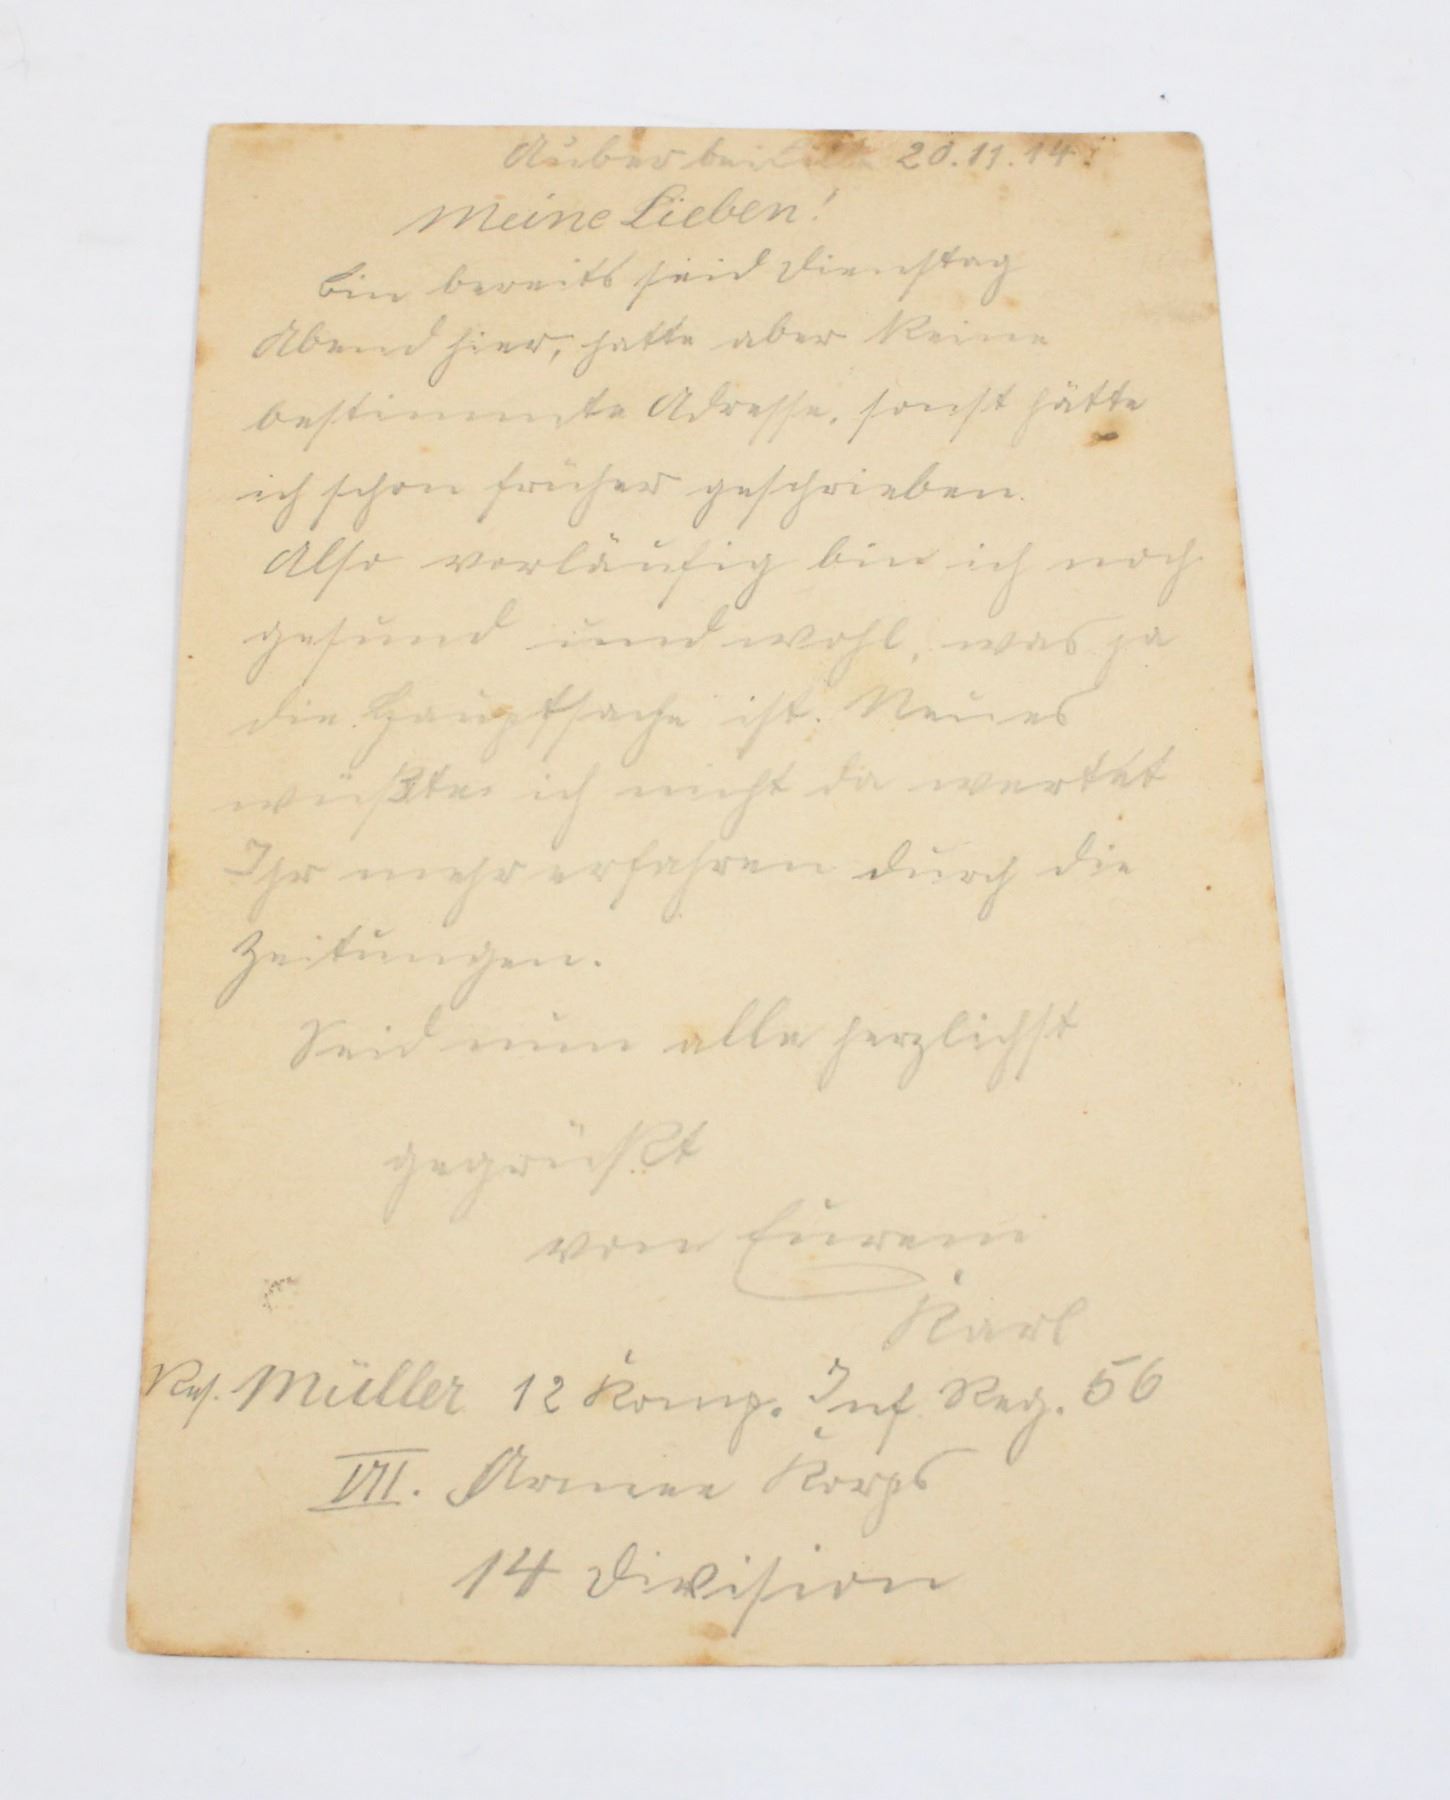 Auber bei Lille 20.11.14.
Meine Lieben!
Bin bereits seid Dienstag
Abend hier, hatte aber keine
bestimmte Adresse, sonst hätte
ich schon früher geschrieben.
Also vorläufig bin ich noch
gesund und wohl, was ja
die Hauptsache ist. Neues
wüßte ich nicht da wertet
Ihr mehr erfahren durch die
Zeitungen.
Seid nun alle herzlichst
gegrüßt
von Eurem
Karl
Res. Müller 12 Komp. Inf. Reg. 56
VII. Armee Korps
14 Division